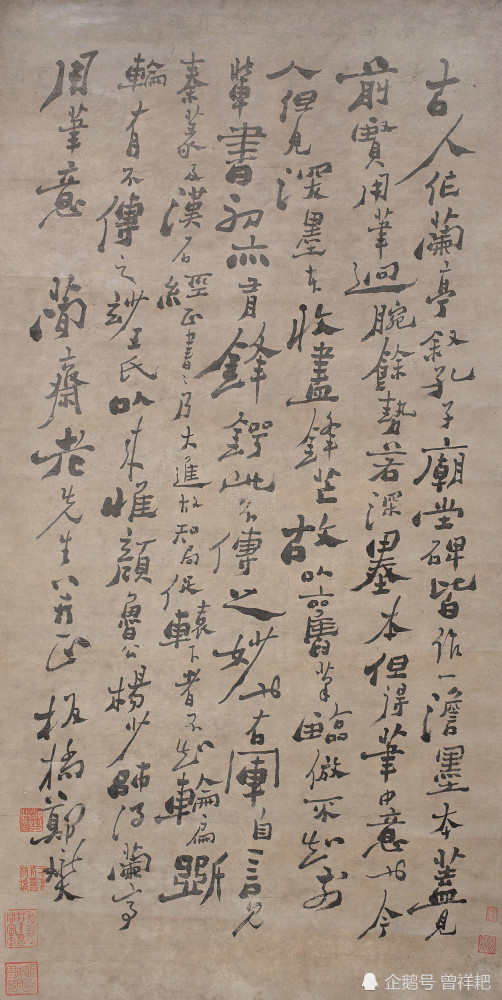 古人作蘭亭敘孔子廟堂碑皆作一澹墨本蓋見
前賢用筆迴腕餘勢若深墨本但得筆中意也今
人但見深墨本收盡鋒芒故以舊筆臨倣不知前
輩書初亦有鋒鍔此不傳之妙也右軍自言見
秦篆及漢石經正書書乃大進故知局促轅下者不知輪扁斲
輪有不傳之妙王氏以來惟顏魯公楊少師得蘭亭
用筆意 蘭齋老先生正 板橋鄭燮
企鹅号 曾祥耙